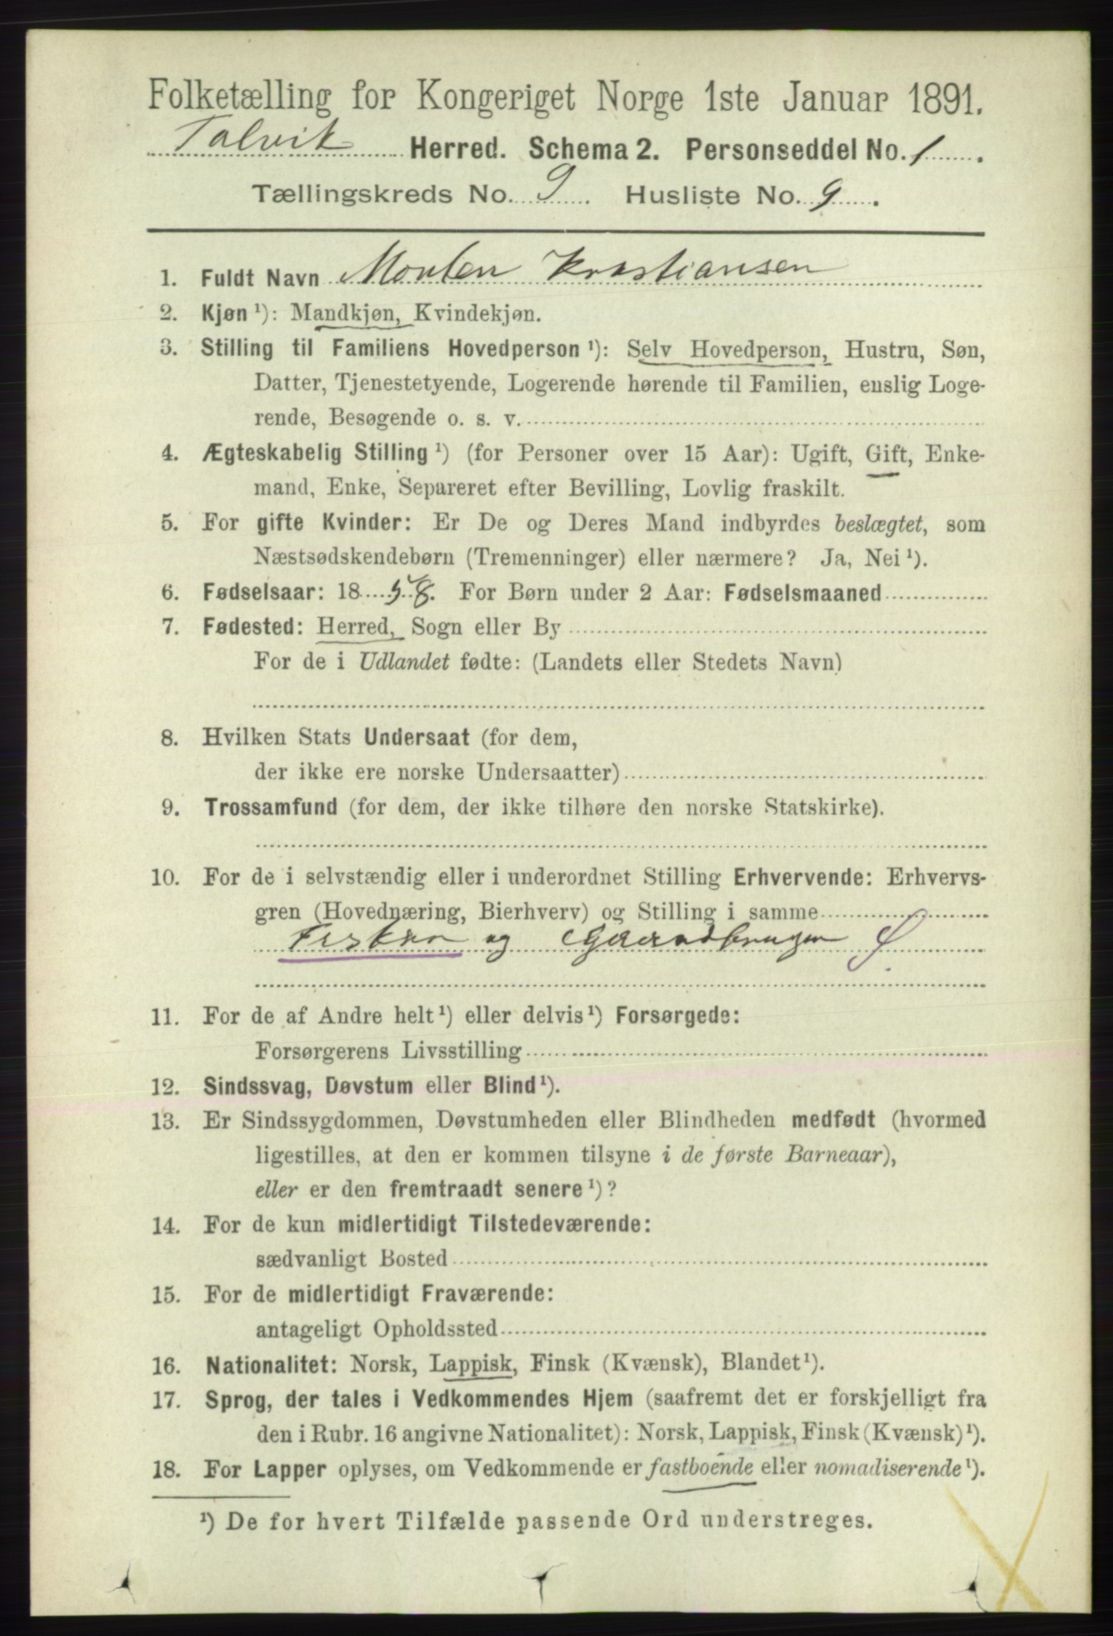 Folketælling for Kongeriget Norge 1ste Januar 1891.
Talvik Herred. Schema 2. Personseddel No. 1.
Tællingskreds No. 9. Husliste No. 9.
1. Fuldt Navn Morten Kristiansen
2. Kjøn ¹): Mandkjøn, Kvindekjøn.
3. Stilling til Familiens Hovedperson ¹): Selv Hovedperson, Hustru, Søn,
Datter, Tjenestetyende, Logerende hørende til Familien, enslig Loge-
rende, Besøgende o. s. v.
4. Ægteskabelig Stilling ¹) (for Personer over 15 Aar): Ugift, Gift, Enke-
mand, Enke, Separeret efter Bevilling, Lovlig fraskilt.
5. For gifte Kvinder: Er De og Deres Mand indbyrdes beslægtet, som
Næstsødskendebørn (Tremenninger) eller nærmere? Ja, Nei ¹).
6. Fødselsaar: 1858. For Børn under 2 Aar: Fødselsmaaned
7. Fødested: Herred, Sogn eller By
For de i Udlandet fødte: (Landets eller Stedets Navn)
8. Hvilken Stats Undersaat (for dem,
der ikke ere norske Undersaatter)
9. Trossamfund (for dem, der ikke tilhøre den norske Statskirke).
10. For de i selvstændig eller i underordnet Stilling Erhvervende: Erhvervs-
gren (Hovednæring, Bierhverv) og Stilling i samme
Fisker og Gaardbruger
11. For de af Andre helt ¹) eller delvis ¹) Forsørgede:
Forsørgerens Livsstilling
12. Sindssvag, Døvstum eller Blind ¹).
13. Er Sindssygdommen, Døvstumheden eller Blindheden medfødt (hvormed
ligestilles, at den er kommen tilsyne i de første Barneaar),
eller er den fremtraadt senere ¹)?
14. For de kun midlertidigt Tilstedeværende:
sædvanligt Bosted
15. For de midlertidigt Fraværende:
antageligt Opholdssted
16. Nationalitet: Norsk, Lappisk, Finsk (Kvænsk), Blandet ¹).
17. Sprog, der tales i Vedkommendes Hjem (saafremt det er forskjelligt fra
den i Rubr. 16 angivne Nationalitet): Norsk, Lappisk, Finsk (Kvænsk) ¹).
18. For Lapper oplyses, om Vedkommende er fastboende eller nomadiserende ¹).
¹) De for hvert Tilfælde passende Ord understreges.